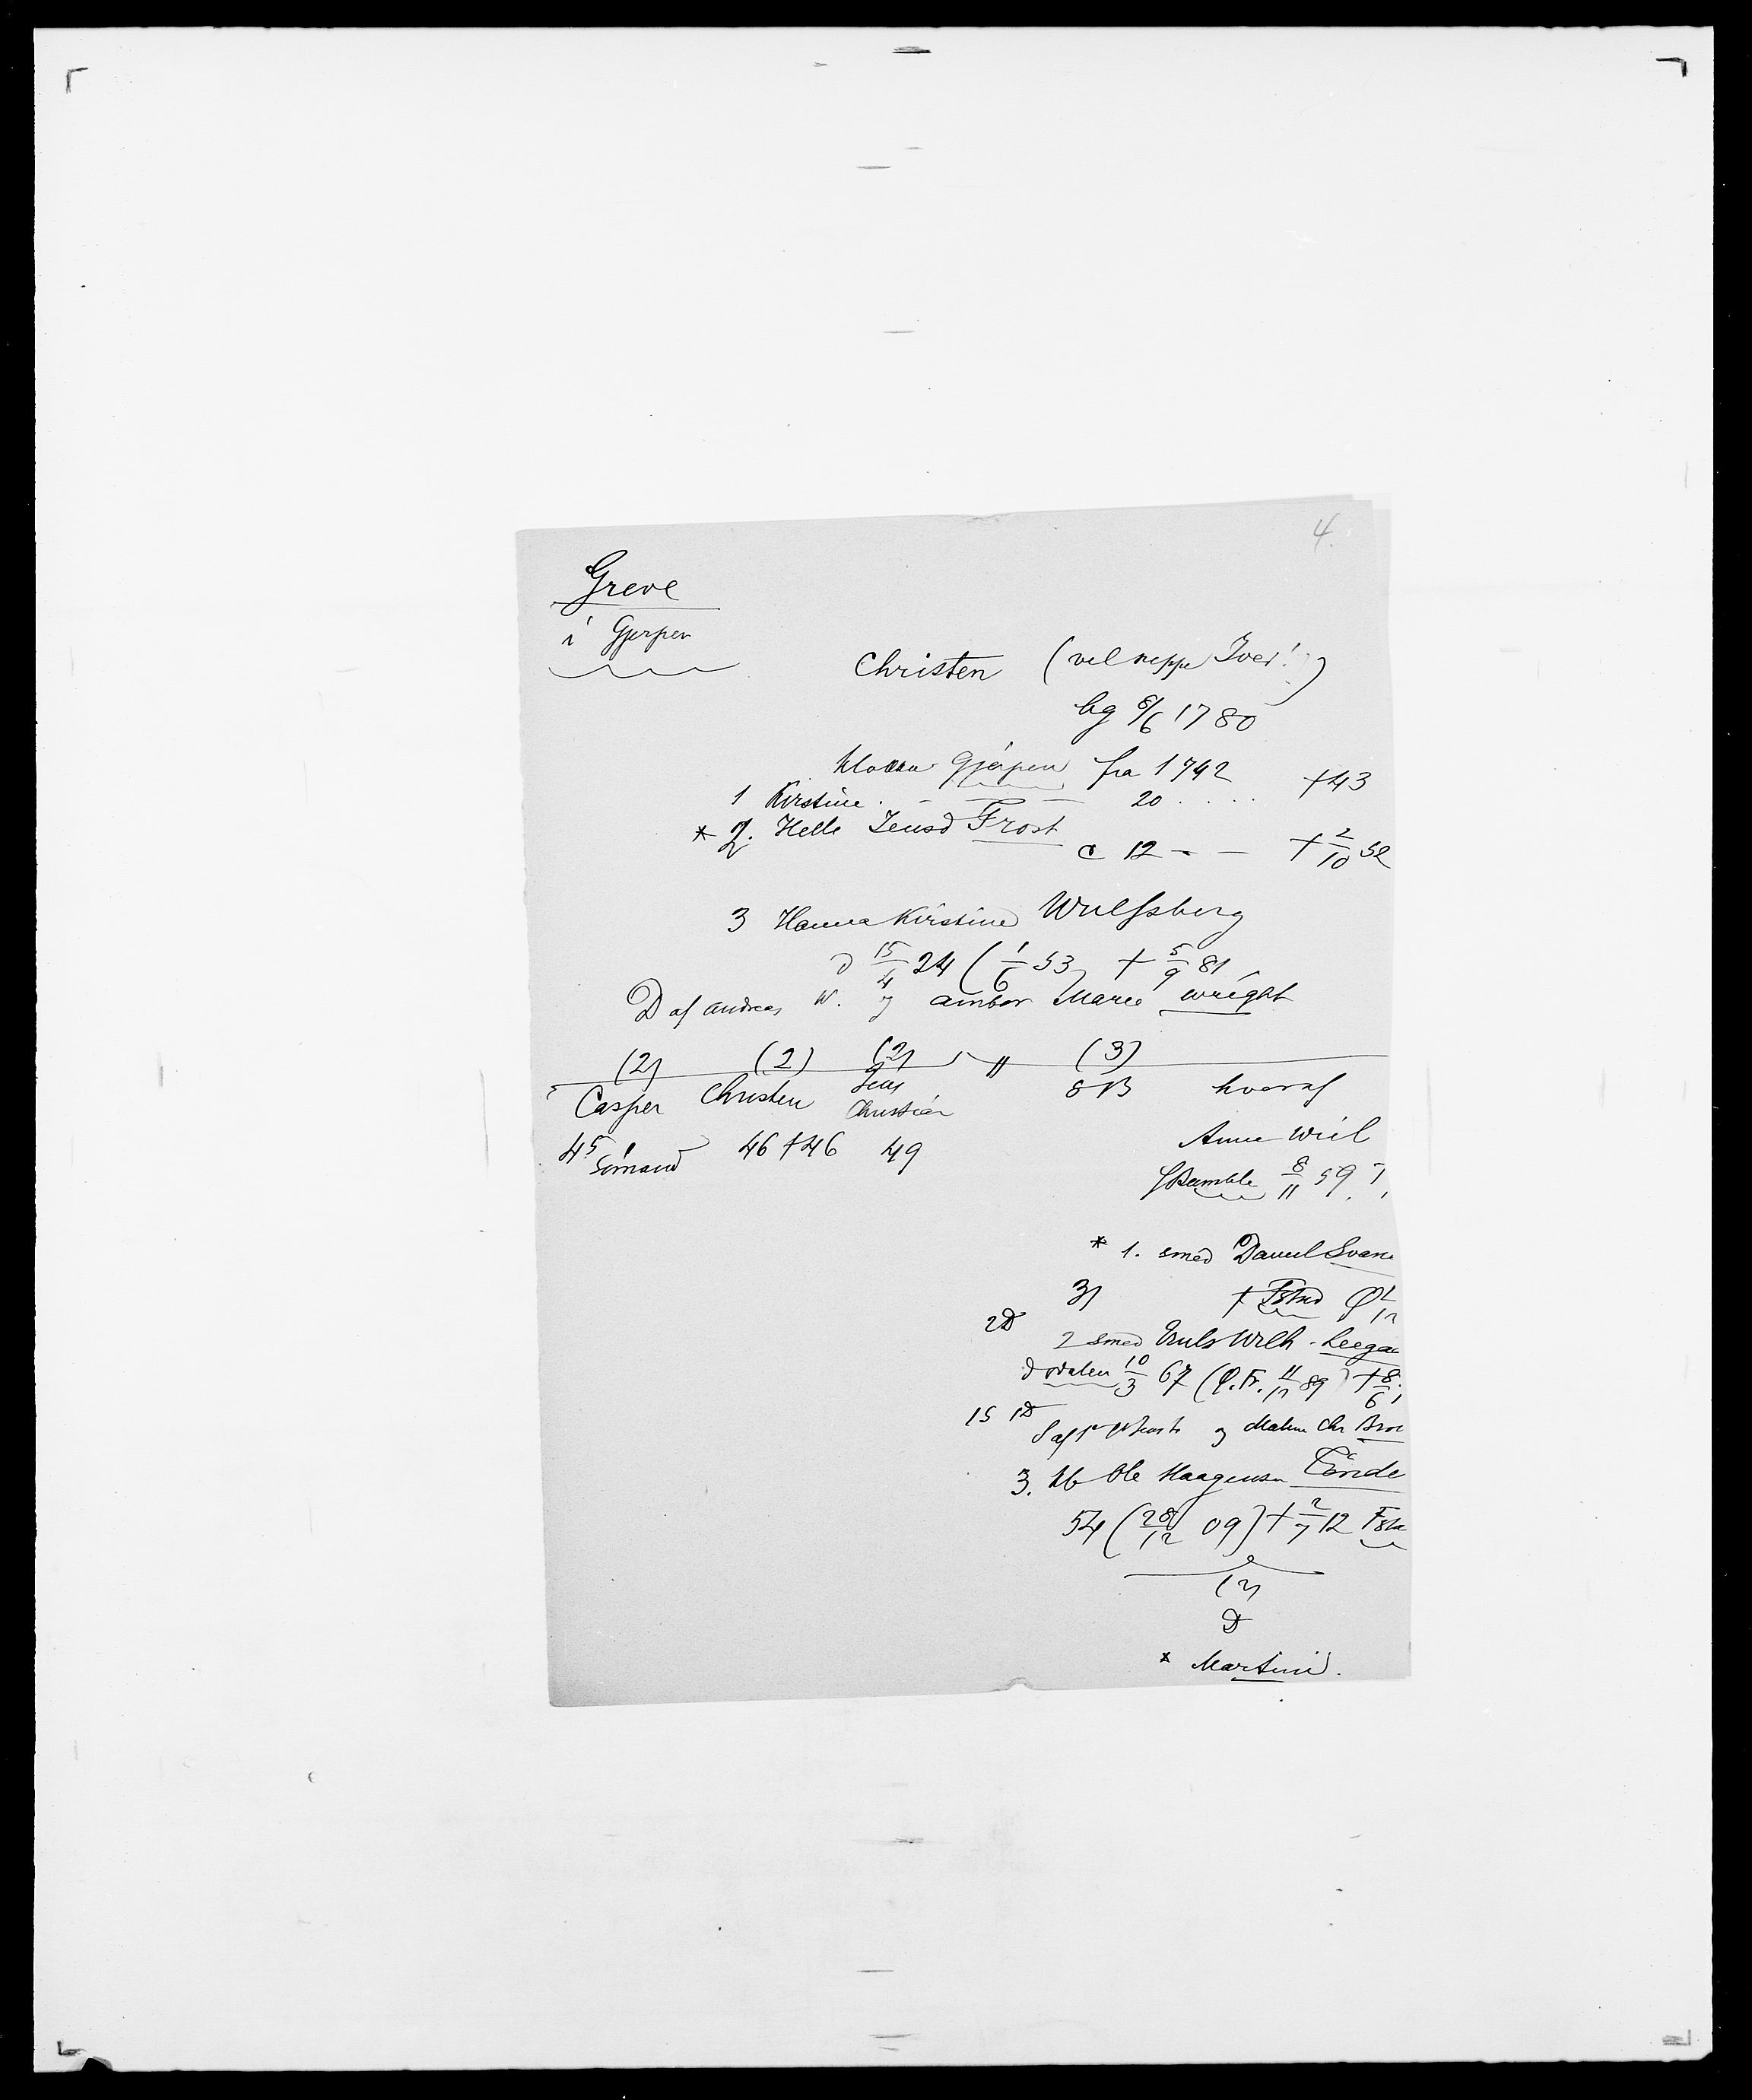 4.
Greve
i Gjerpen
Christen (vel neppe Iver!)
bg 8/6 1780
Klokker Gjerpen fra 1742 †43
1 Kirstine 20 . . . .
* 2. Helle Jensd Frost
c 12 - - † 2/10 52
3 Hanna Kirstine Wulfsberg
d 15/4 24 ( 1/6 53) † 5/9 81
D af Andreas W. og Marie Wright
(2) (2) (2) " (3)
Casper Christen Jens 8 B hvoraf
Christian
45 46 †46 49 Anne Wiel
Sömand
Bamble 8/11 59
* 1. smed Daniel Svane
3)
2D
2 smed Wilh. Leega
10/3 67 11/11 89) † 8/6
1S 1D
og Chr Bro
3. Ole Haagensen
54 ( 28/12 09) † 2/7 12
(3)
D
* Martini.